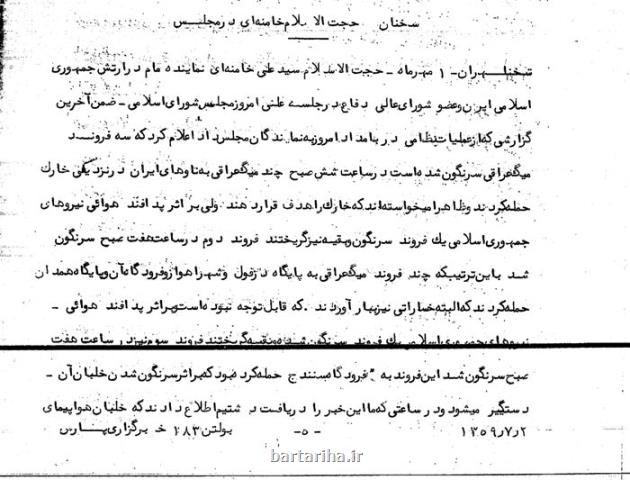 سخنان حجت الاسلام خامنه‌ای در مجلس
تهران - ۱ مهرماه - حجت الاسلام سید علی خامنه‌ای نماینده امام در ارتش جمهوری
اسلامی ایران و عضو شورای عالی دفاع در جلسه علنی امروز مجلس شورای اسلامی - ضمن آخرین
گزارشی که از عملیات نظامی در بامداد امروز به نمایندگان مجلس داد اعلام کرد که سه فروند
میگ عراقی سرنگون شده است در ساعت شش صبح چند میگ عراقی به ناوهای ایران در نزدیکی خارک
حمله کردند و ظاهرا میخواسته‌اند که خارک را هدف قرار دهند ولی بر اثر پدافند هوائی نیروهای
جمهوری اسلامی یک فروند سرنگون و بقیه نیز گریختند فروند دوم در ساعت هفت صبح سرنگون
شد باین ترتیب که چند فروند میگ عراقی به پایگاه دزفول و شهر اهواز و فرودگاه آن و پایگاه همدان
حمله کردند که البته خساراتی نیز ببار آوردند . که قابل توجه نبوده است و بر اثر پدافند هوائی -
نیروهای جمهوری اسلامی یک فروند سرنگون شده و بقیه گریختند فروند سوم نیز در ساعت هفت
صبح سرنگون شد این فروند به فرودگاه سنندج حمله کرده بود که بر اثر سرنگون شدن خلبان آن -
دستگیر میشود و در ساعتی که ما این خبر را دریافت داشتیم اطلاع دادند که خلبان هواپیمای
۱۳۵۹/۷/۲ -۵- بولتن ۱۸۳ خبرگزاری پارس
bartariha.ir